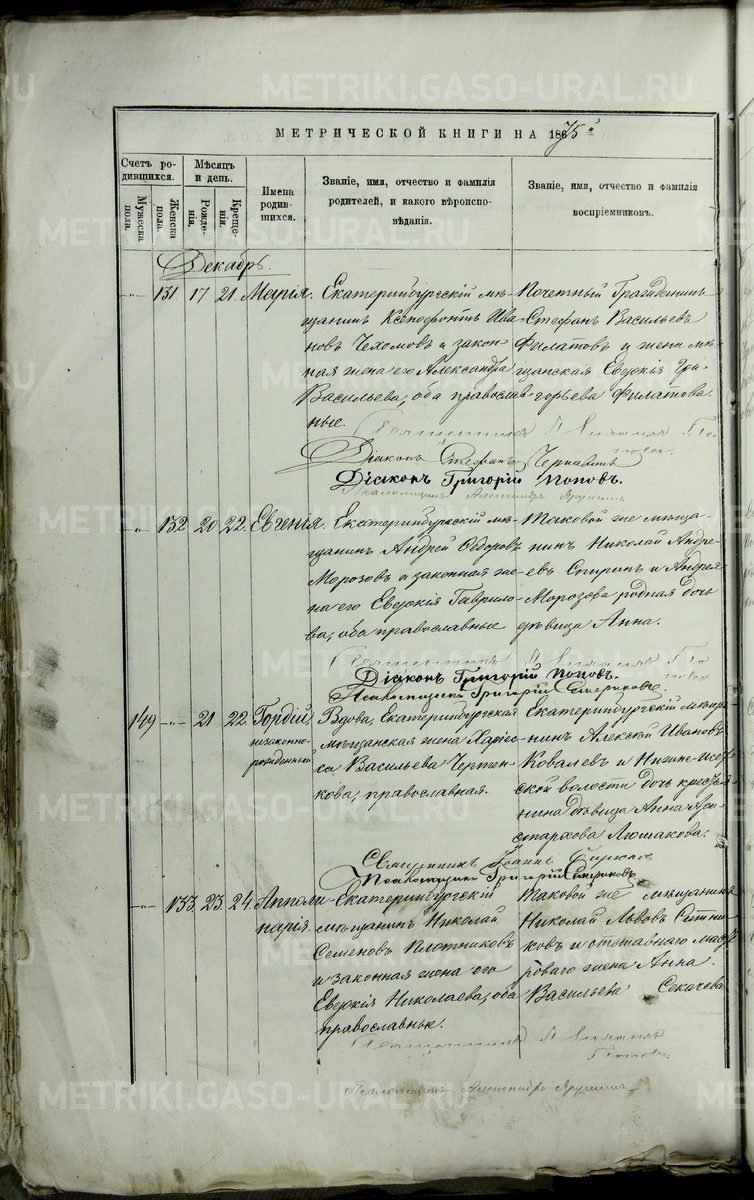 METRIKI.GASO-URAL.RU
МЕТРИЧЕСКОЙ КНИГИ НА 1875й
Счетъ ро-
дившихся.
Мужеска
пола.
Женска
пола.
Мѣсяцъ
и день.
Рожде-
нія.
Креще-
нія.
Имена
родив-
шихся.
Званіе, имя, отчество и фамилія
родителей, и какого вѣроиспо-
вѣданія.
Званіе, имя, отчество и фамилія
воспріемниковъ.
Декабрь.
131 17 21. Марія.
Екатеринбургскій мѣ-
щанинъ Ксенофонтъ Ива
новъ Чехомовъ и закон
ная жена его Александра
Васильева, оба православ
ные.
Почетный Гражданинъ
Стефанъ Васильевъ
Филатовъ и жена мѣ-
щанская Евдокія Гри-
горьева Филатова.
Священникъ
Діаконъ Стефанъ
Діаконъ Григорій Поповъ.
132 20 22. Евгенія.
Екатеринбургскій мѣ-
щанинъ Андрей Ѳедоровъ
Морозовъ и законная же-
на его Евдокія Гаврило-
ва, оба православные
Таковой же мѣща-
нинъ Николай Андре-
евъ Спиринъ и Андрея
Морозова родная дочь
дѣвица Анна.
Священникъ
Діаконъ Григорій Поповъ.
Псаломщикъ Григорій
149 21 22. Гордій,
незаконно-
рожденный
Вдова, Екатеринбургская
мѣщанская жена Харіес-
са Васильева Чертен-
кова, православная.
Екатеринбургскій мѣща-
нинъ Алексѣй Ивановъ
Ковалевъ и Нижне-Исет
ской волости дочь кресть
янина дѣвица Анна Ари-
стархова Люшакова.
Священникъ Іоаннъ
Псаломщикъ Григорій
133. 23. 24. Апполи-
нарія.
Екатеринбургскій
мѣщанинъ Николай
Семеновъ Плотниковъ
и законная жена его
Евдокія Николаева, оба
православные.
Таковой же мѣщанинъ
Николай Львовъ Ситни
ковъ и отставнаго масте
роваго жена Анна
Васильева Секачева
Священникъ
Поповъ
Псаломщикъ Александръ